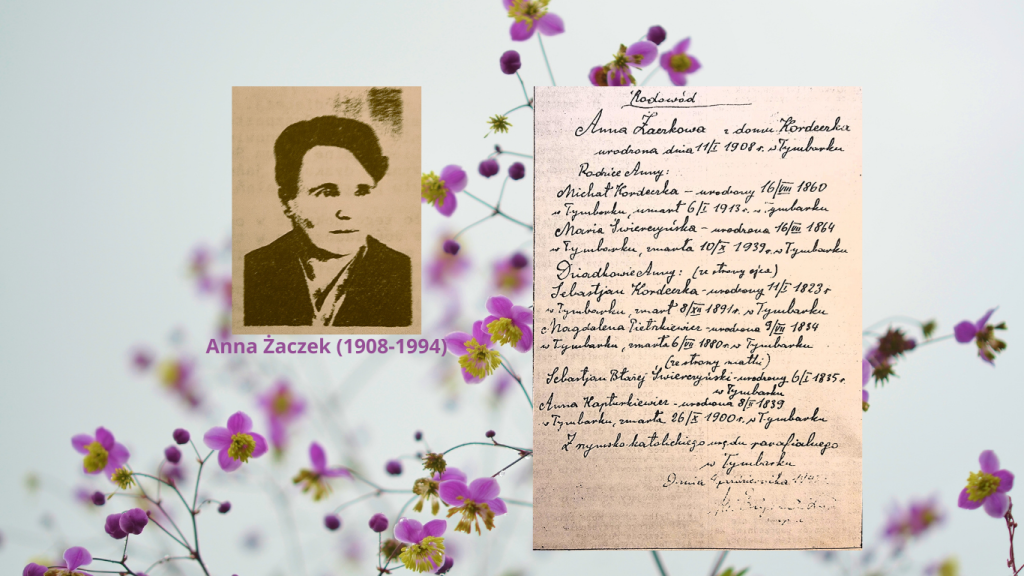 Anna Żaczek (1908-1994)
Rodowód
Anna Żaczkowa z domu Kordeczka
urodzona dnia 11/I 1908 r. w Tymbarku
Rodzice Anny:
Michał Kordeczka – urodzony 16/VIII 1860
w Tymbarku, umarł 6/I 1913 r. w Tymbarku
Maria Świerczyńska – urodzona 16/VIII 1864
w Tymbarku, zmarła 10/X 1939 r. w Tymbarku
Dziadkowie Anny: (ze strony ojca)
Sebastjan Kordeczka – urodzony 11/I 1823 r
w Tymbarku, zmarł 8/XII 1891 r. w Tymbarku
Magdalena Pietrkiewicz - urodzona 9/VII 1834
w Tymbarku, zmarła 6/VII 1880 r. w Tymbarku
(ze strony matki)
Sebastjan Błażej Świerczyński - urodzony 6/I 1835 r.
w Tymbarku
Anna Kapturkiewicz - urodzona 8/X 1839
w Tymbarku, zmarła 26/X 1900 r. w Tymbarku
Z rzymsko katolickiego urzędu parafialnego
w Tymbarku
Dnia października